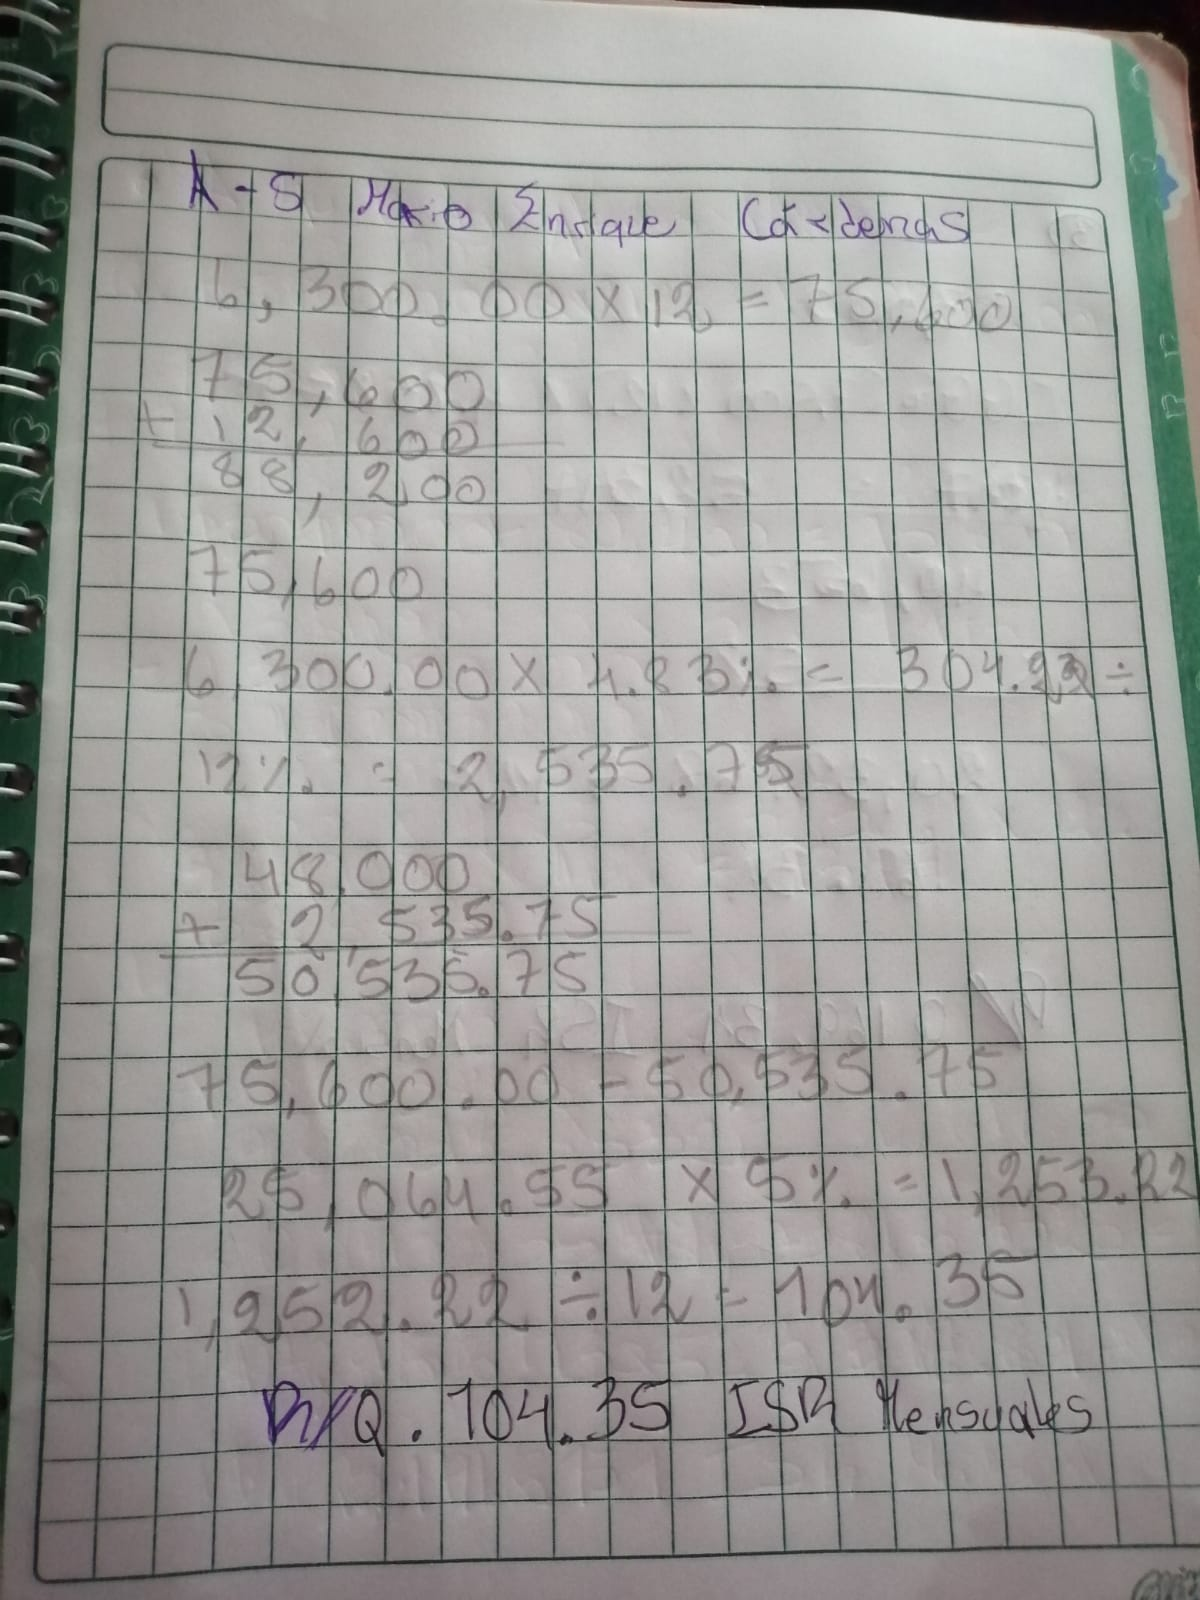 A-5 Mario Enrique Cardenas
6,300.00 x 12 = 75,600
75,600
+ 12,600
88,200
75,600
6,300.00 x 4.83% = 304.29 ÷
12% = 2,535.75
48,000
+ 2,535.75
50,535.75
75,600.00 - 50,535.75
25,064.55 x 5% = 1,253.22
1,252.22 ÷ 12 - 104.35
R/Q. 104.35 ISR Mensuales